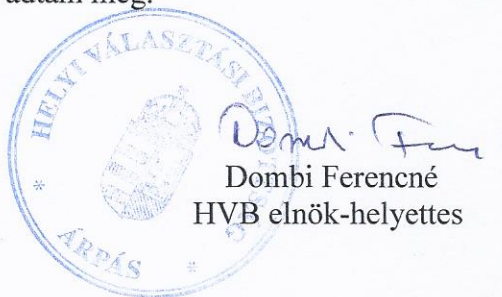 adtam meg.
HELYI VÁLASZTÁSI BIZOTTSÁG
* ÁRPÁS *
Dombi Fer
Dombi Ferencné
HVB elnök-helyettes